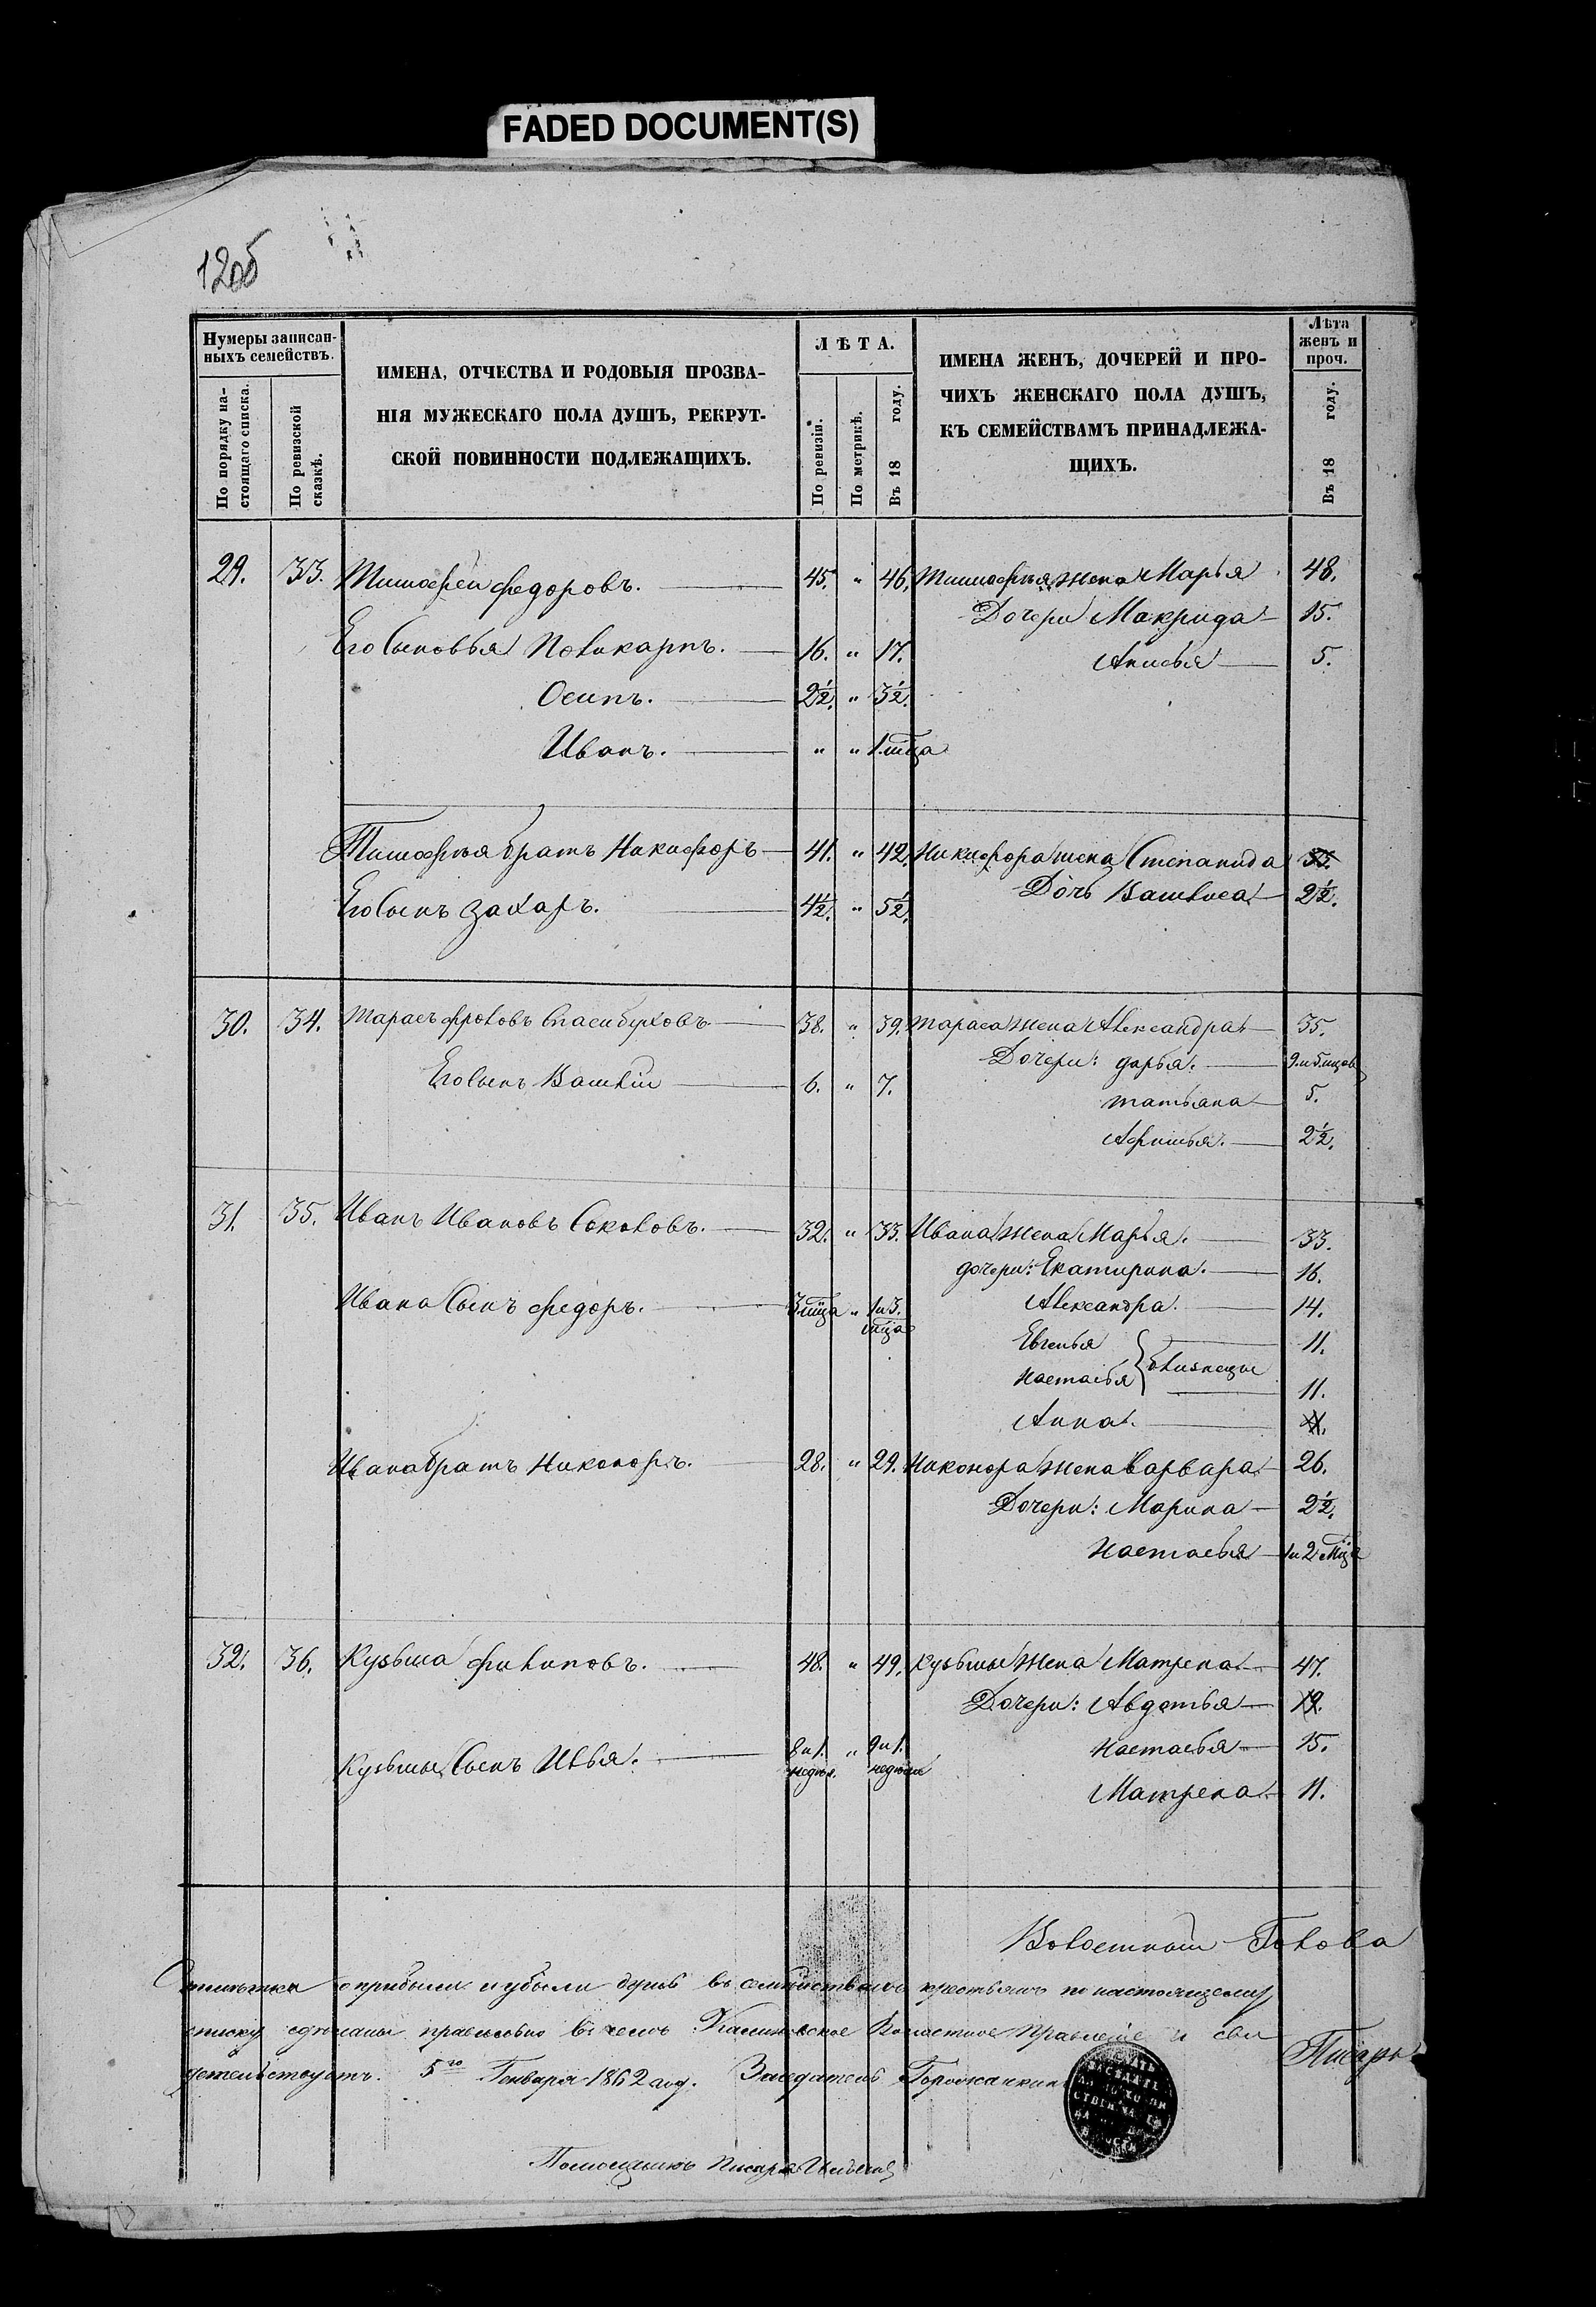 FADED DOCUMENT(S)
120б
Нумеры записан-
ныхъ семействъ.
По порядку на-
стоящаго списка.
По ревизской
сказкѣ.
ИМЕНА, ОТЧЕСТВА И РОДОВЫЯ ПРОЗВА-
НІЯ МУЖЕСКАГО ПОЛА ДУШЪ, РЕКРУТ-
СКОЙ ПОВИННОСТИ ПОДЛЕЖАЩИХЪ.
ЛѢТА.
По ревизіи.
По метрикѣ.
Въ 18 году.
ИМЕНА ЖЕНЪ, ДОЧЕРЕЙ И ПРО-
ЧИХЪ ЖЕНСКАГО ПОЛА ДУШЪ,
КЪ СЕМЕЙСТВАМЪ ПРИНАДЛЕЖА-
ЩИХЪ.
Лѣта
женъ и
проч.
Въ 18 году.
29. 33. Тимофей Федоровъ. 45. " 46. Тимофея жена Марья 48.
Дочери Макрида 15.
Его Сыновья Поликарпъ. 16. " 17.
Анисья 5.
Осипъ. 2½. " 3½.
Иванъ. " " 1 мца
Тимофея братъ Никифоръ 41. " 42. Никифора жена Степанида
Дочь Василиса 2½.
Его Сынъ Захаръ. 4½. " 5½.
30. 34. Тарасъ Фроловъ 38. " 39. Тараса жена Александра 35.
Дочери: Дарья. 9 и 5 мцов
Его Сынъ Василій 6. " 7.
Татьяна 5.
Афимья. 2½.
31. 35. Иванъ Ивановъ Соколовъ. 32. " 33. Ивана жена Марья. 33.
дочери: Екатирина. 16.
Ивана Сынъ Федоръ. 3 мца " 1 и 3. мца
Александра. 14.
Евгенья 11.
Настасья близнецы 11.
Анна.
Ивана братъ Никоноръ. 28. " 29. Никонора жена Варвара 26.
Дочери: Марина 2½.
Настасья 1 и 2 мца
32. 36. Кузьма Филиповъ. 48. " 49. Кузьмы жена Матрена 47.
Дочери: Авдотья 19.
Кузьмы Сынъ Илья. 8 и 1. недѣл. " 9 и 1. недѣли
Настасья 15.
Матрена 11.
Волостной Голова
Отмѣтки о прибыли и убыли душъ въ семѣйствахъ крестьянъ по настоящему
списку сдѣланы правильно въ чемъ Волостное Правленіе и сви
детельствуетъ. 5го Генваря 1862 год. Заседатель
Писарь
Помощникъ Писаря